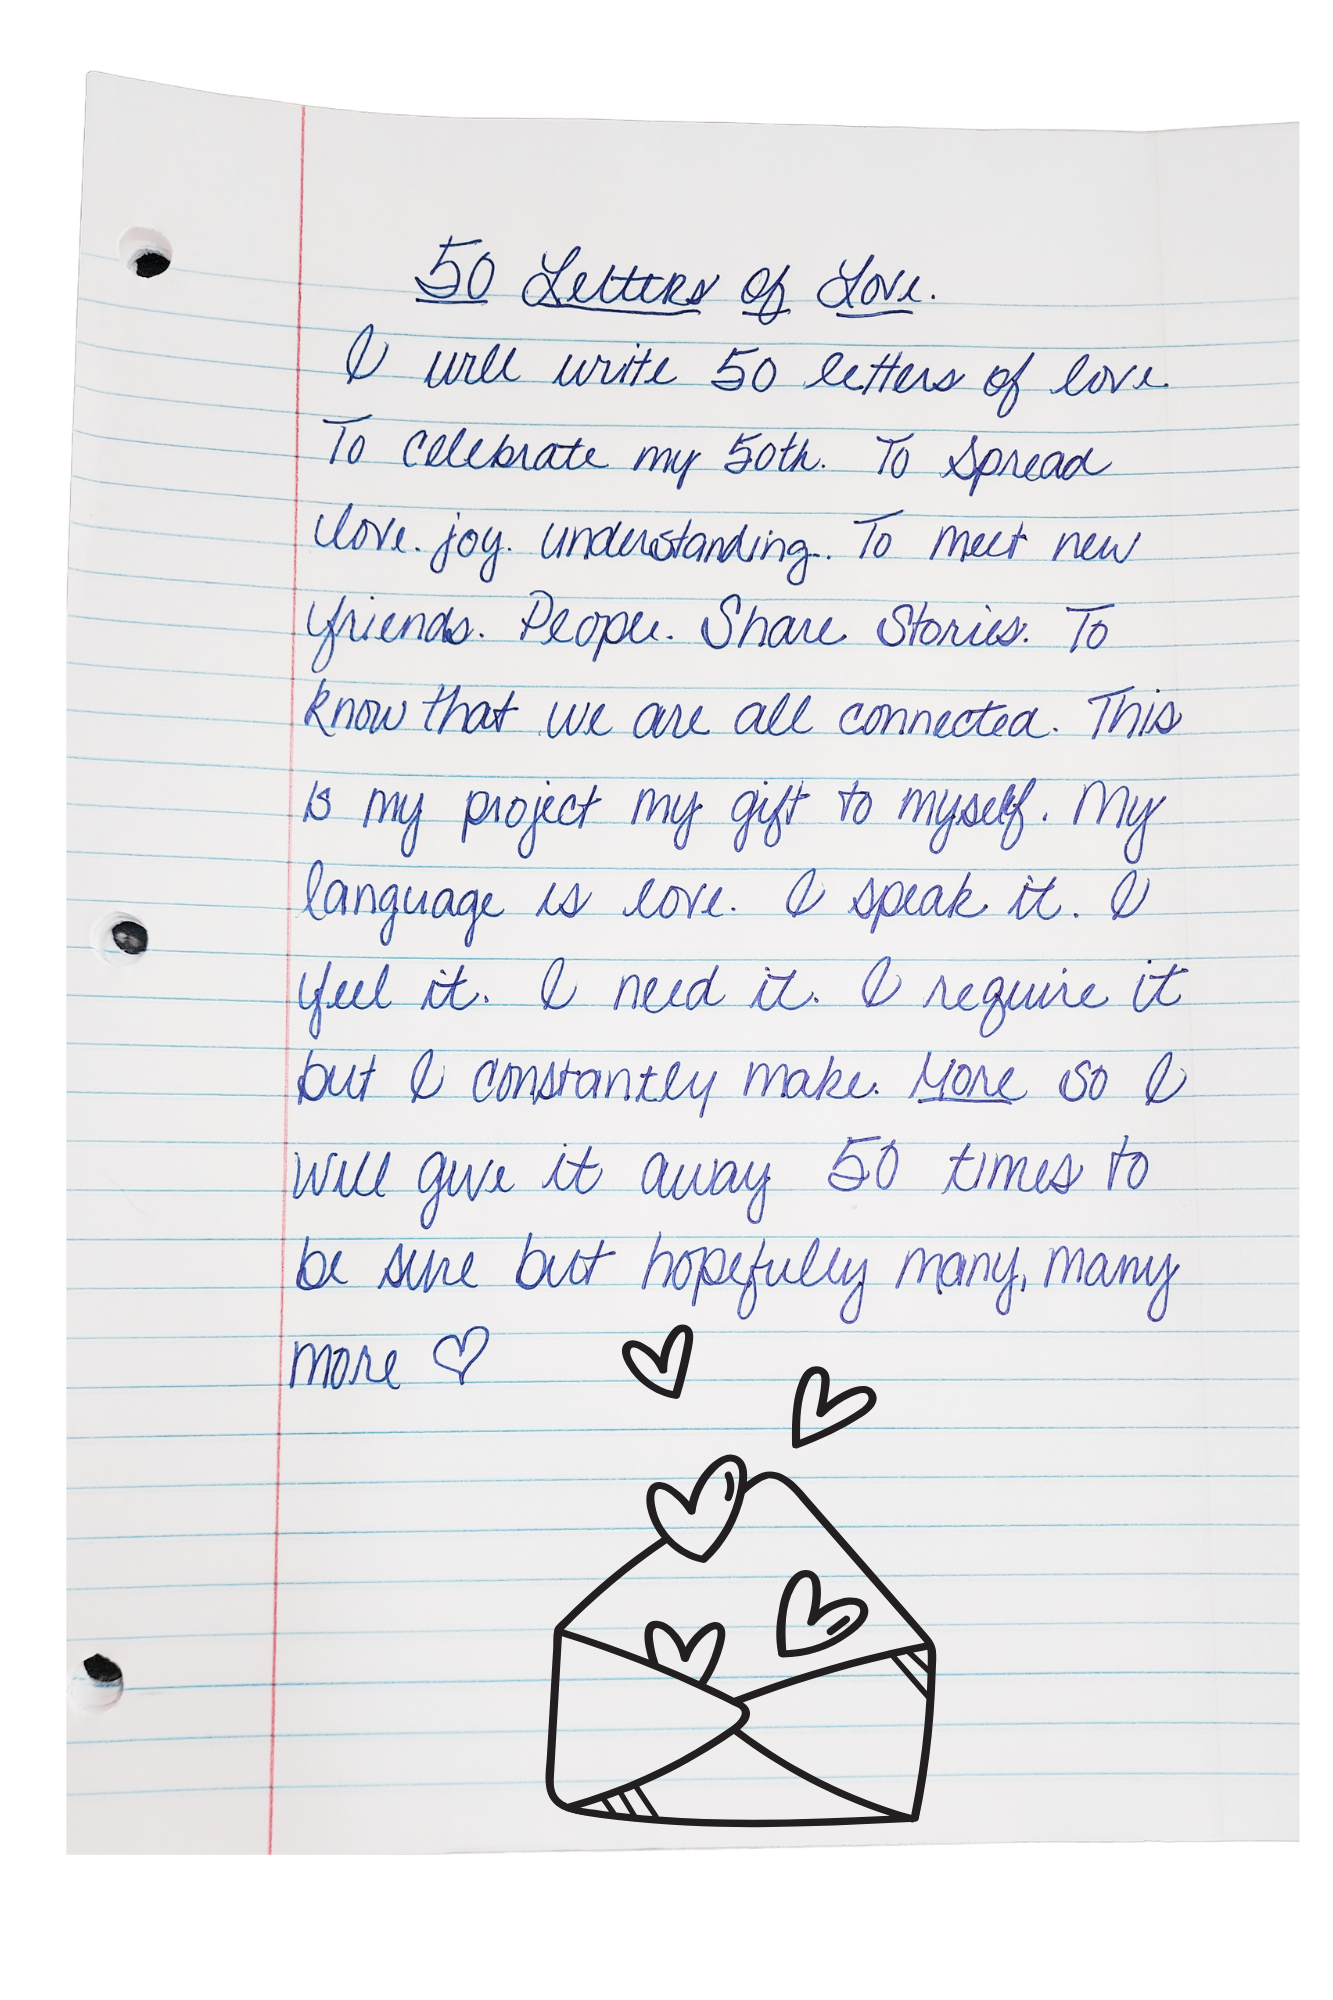 50 Letters of Love.
I will write 50 letters of love.
To celebrate my 50th. To spread
love. joy. understanding. To meet new
friends. People. Share Stories. To
know that we are all connected. This
is my project my gift to myself. My
language is love. I speak it. I
feel it. I need it. I require it
but I constantly make. More so I
will give it away 50 times to
be sure but hopefully many, many
more ♡